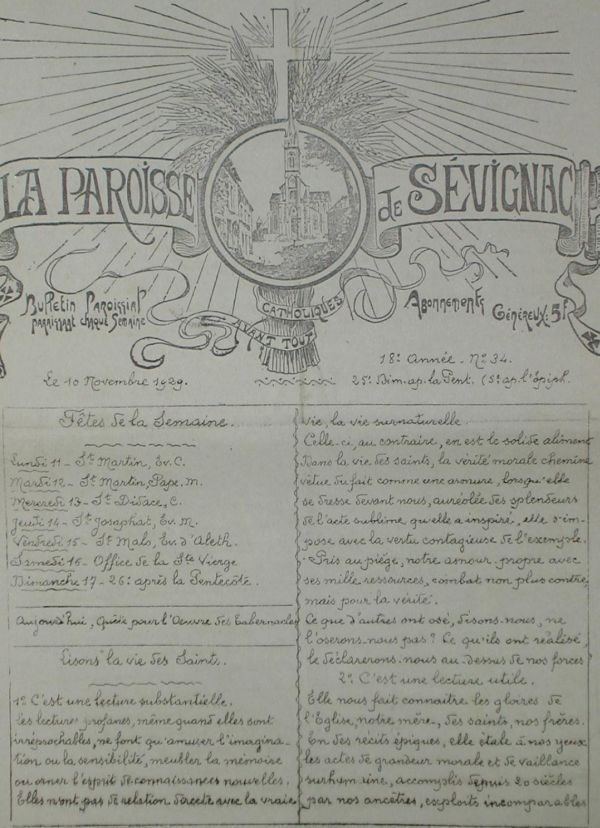 LA PAROISSE DE SÉVIGNAC
Bulletin Paroissial
paraissant chaque Semaine
CATHOLIQUES
AVANT TOUT
Abonnements
Généreux: 5F
18e Année - No 34.
Le 10 Novembre 1929.
25e Dim. ap. la Pent. (5e ap. l'épiph.
Fêtes de la Semaine.
Lundi 11 - St Martin, Ev. C.
Mardi 12 - St Martin, Pape. M.
Mercredi 13 - St Didace, C.
Jeudi 14 - St Josaphat, Ev. M.
Vendredi 15 - St Malo, Ev. d'Aleth.
Samedi 16 - Office de la Ste Vierge
Dimanche 17 - 26e après la Pentecôte.
Aujourd'hui, Quête pour l'Oeuvre des Tabernacles
Lisons la vie des Saints.
1o C'est une lecture substantielle.
Les lectures profanes, même quand elles sont
irréprochables, ne font qu'amuser l'imagina-
tion ou la sensibilité, meubler la mémoire
ou orner l'esprit de connaissances nouvelles.
Elles n'ont pas de relation directe avec la vraie
vie, la vie surnaturelle.
Celle-ci, au contraire, en est le solide aliment
Dans la vie des saints, la vérité morale chemine
vêtue du fait comme une armure, lorsqu'elle
se dresse devant nous, auréolée des splendeurs
de l'acte sublime qu'elle a inspiré, elle s'im-
pose avec la vertu contagieuse de l'exemple.
Pris au piège, notre amour-propre avec
ses mille ressources, combat non plus contre,
mais pour la vérité.
Ce que d'autres ont osé, disons-nous, ne
l'oserons-nous pas? Ce qu'ils ont réalisé,
le déclarerons-nous au-dessus de nos forces?
2o C'est une lecture utile.
Elle nous fait connaître les gloires de
l'Eglise, notre mère, des saints, nos frères.
En des récits épiques, elle étale à nos yeux
les actes de grandeur morale et de vaillance
surhumaine, accomplis depuis 20 siècles
par nos ancêtres, exploits incomparables